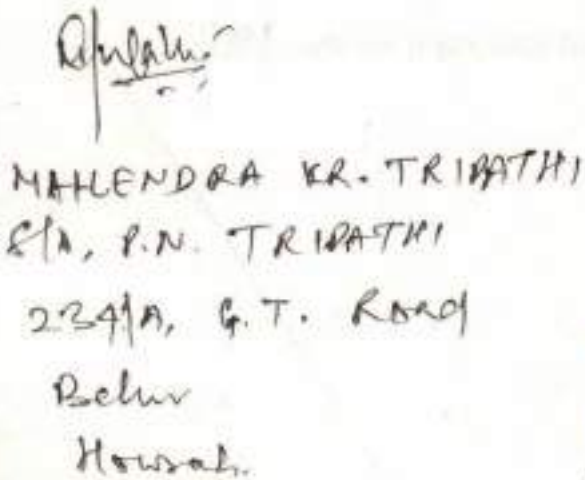 MAHENDRA KR. TRIPATHI
S/A, P.N. TRIPATHI
234/A, G.T. Road
Belur
Howrah.